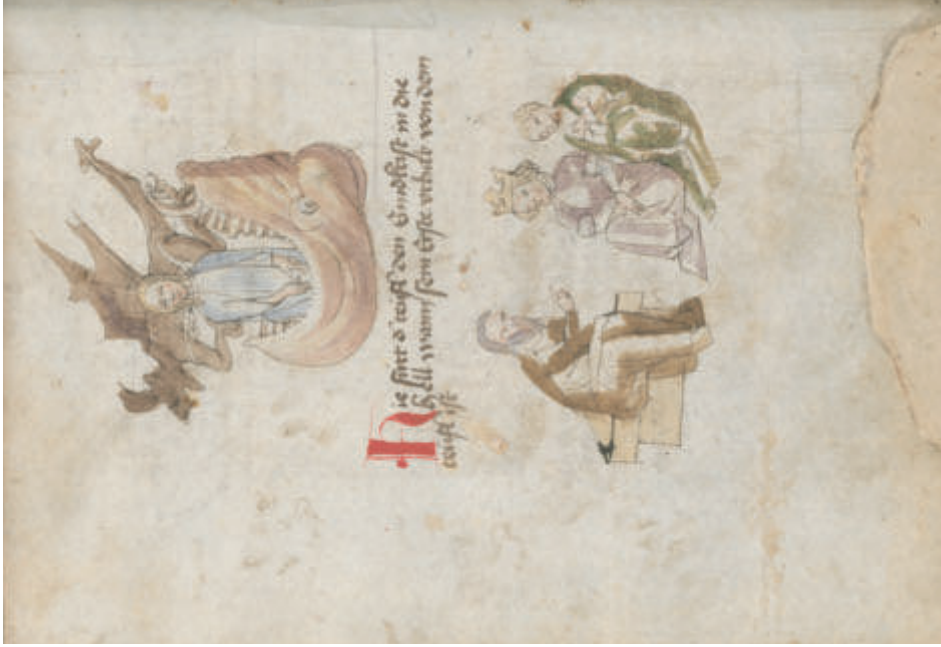 Hie fürt d' teufl den Enndkrist in die
hell wann sein erste vrheb von dem
teufl ist